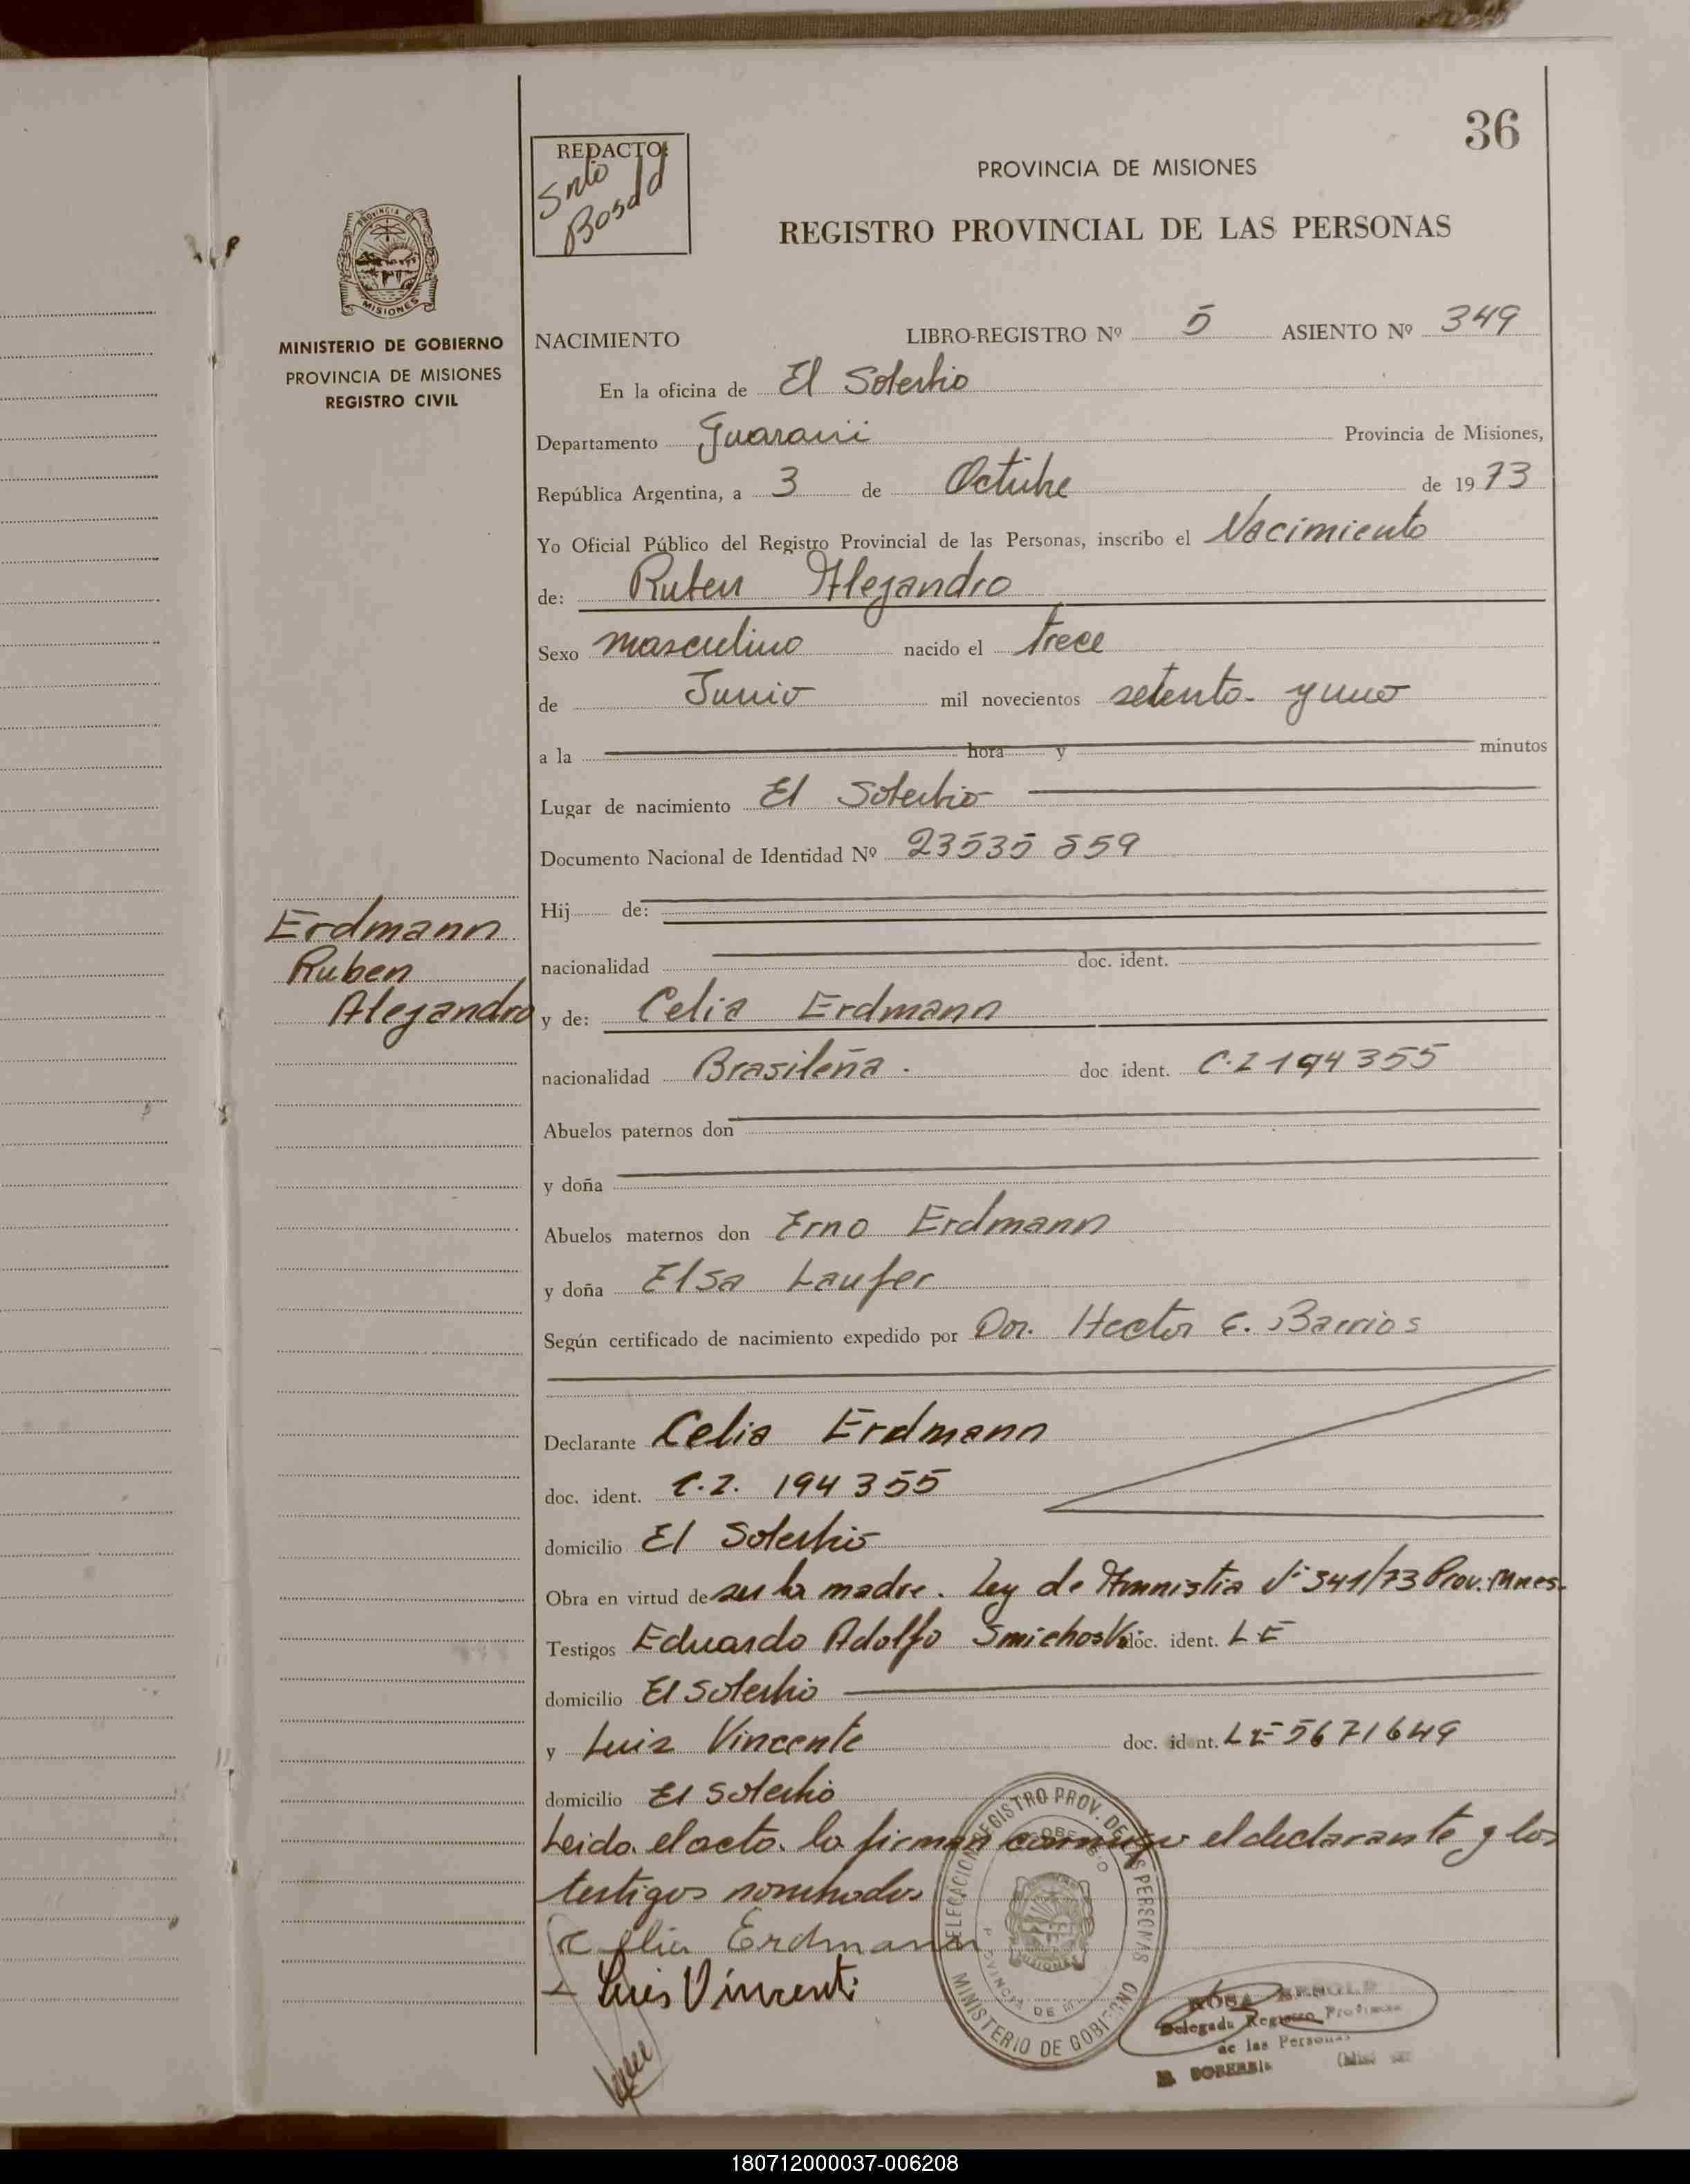 36
REDACTO:
PROVINCIA DE MISIONES
REGISTRO PROVINCIAL DE LAS PERSONAS
PROVINCIA DE
MISIONES
MINISTERIO DE GOBIERNO
PROVINCIA DE MISIONES
REGISTRO CIVIL
NACIMIENTO LIBRO-REGISTRO Nº 5 ASIENTO Nº 349
En la oficina de El Soberbio
Departamento Guarani Provincia de Misiones,
República Argentina, a 3 de Octubre de 1973
Yo Oficial Público del Registro Provincial de las Personas, inscribo el Nacimiento
de: Ruben Alejandro
Sexo masculino nacido el trece
de Junio mil novecientos setenta y uno
a la hora y minutos
Lugar de nacimiento El Soberbio
Documento Nacional de Identidad Nº 23535 859
Hij de:
nacionalidad doc. ident.
Erdmann
Ruben
Alejandro
y de: Celia Erdmann
nacionalidad Brasileña. doc ident. C.I 194355
Abuelos paternos don
y doña
Abuelos maternos don Erno Erdmann
y doña Elsa Laufer
Según certificado de nacimiento expedido por Dor. Hector C. Barrios
Declarante Celia Erdmann
doc. ident. C.I. 194355
domicilio El Soberbio
Obra en virtud de ser la madre. Ley de Amnistia Nº 341/73 Prov. Mnes.
Testigos Eduardo Adolfo doc. ident. LE
domicilio El Soberbio
y Luis Vincente doc. ident. LE 5671649
domicilio El Soberbio
Leida el acta la firman conmigo el declarante y los
testigos nombrados
Celia Erdmann
Luis Vincenti
DELEGACION REGISTRO PROV. DE LAS PERSONAS
MINISTERIO DE GOBIERNO
ROSA
Delegada Registro Provincial
de las Personas
EL SOBERBIO
180712000037-006208